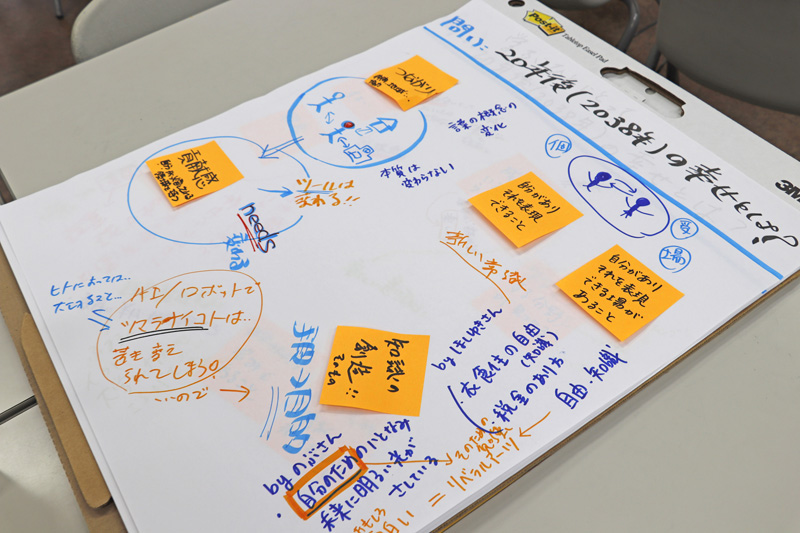 Post-it
Tabletop Easel Pad
3M
問い:
20年後(2038年)の幸せカタチは
つながり
課の概念の
変化
個
本質は
変わらない
貢献感
ツールは
変わる!!
needs
変わる
自分があり
それを表現
できること
場
自分があり
それを表現
できる場が
あること
新しい常識
ヒトによっては…
AI/ロボットで
ツマラナイコトは…
置き変え
られてしまう。
…ので
→
知識の
創造!!
byほしゆきさん
・衣食住の自由
(知識)
・税金のあり方
自由・知識
byのぶさん
・自分のためのいとなみ
未来に明るい光が
さしている
そのための
勉強
= リベラルアーツ
おもしろ